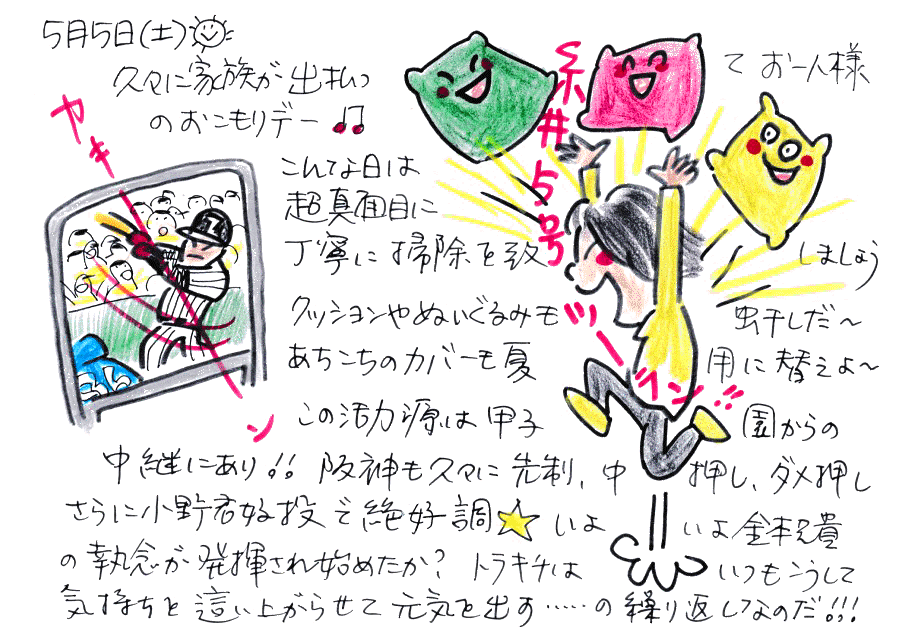 5月5日(土)
久々に家族が出払って お一人様
のおこもりデー♫
こんな日は
超真面目に
丁寧に掃除を致しましょう
クッションやぬいぐるみも虫干しだ～
あちこちのカバーも夏用に替えよ～
この活力源は甲子園からの
中継にあり!! 阪神も久々に先制、中押し、ダメ押し
さらに小野君好投で絶好調☆いよいよ金本兄貴
の執念が発揮され始めたか? トラキチはいつもこうして
気持ちを這い上がらせて元気を出す……の繰り返しなのだ!!!
カキーン
糸井5号
ツーベン!!